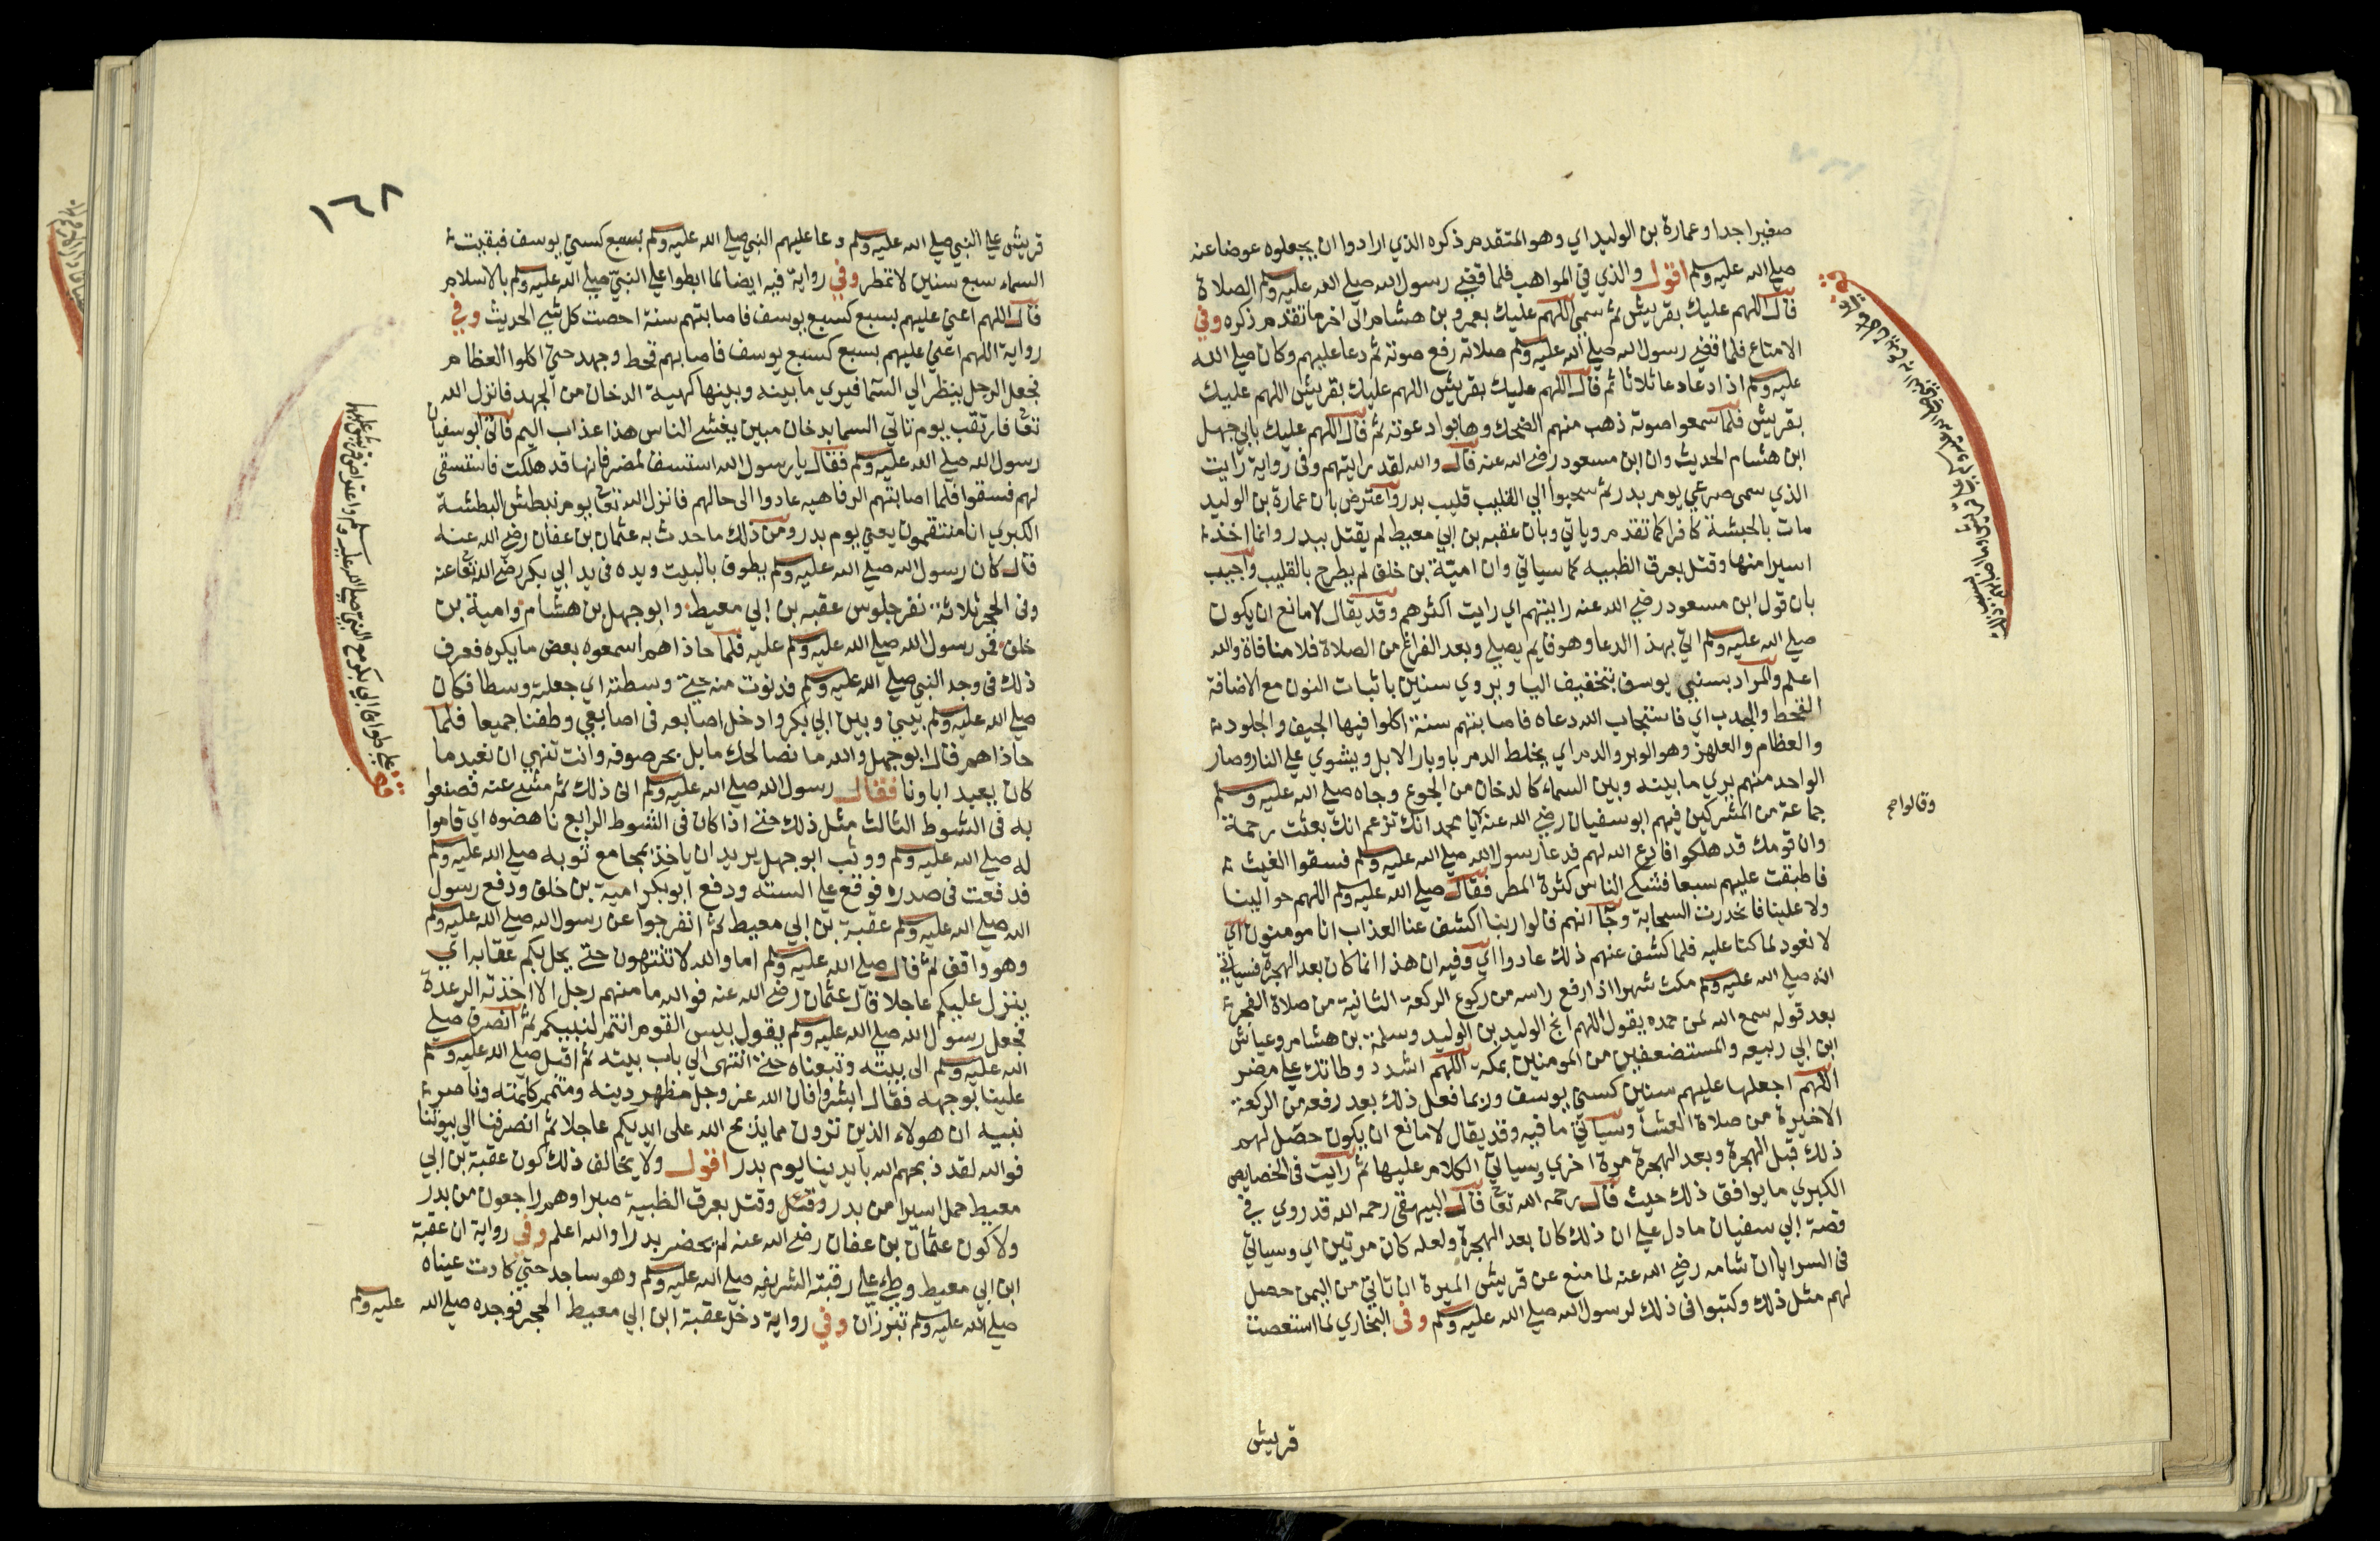 صغيرا جدا وعمارة بن الوليد اي وهو المتقدم ذكره الذي ارادوا ان يجعلوه عوضا عنه
صلى الله عليه وسلم اقول والذي في المواهب فلما قضى رسول الله صلى الله عليه وسلم الصلاة
قال اللهم عليك بقريش ثم سمى اللهم عليك بعمرو بن هشام الى اخر ما تقدم ذكره وفي
الامتاع فلما قضى رسول الله صلى الله عليه وسلم صلاته رفع صوته ثم دعا عليهم وكان صلى الله
عليه وسلم اذا دعا دعا ثلاثا ثم قال اللهم عليك بقريش اللهم عليك بقريش اللهم عليك
بقريش فلما سمعوا صوته ذهب منهم الضحك وهابوا دعوته ثم قال اللهم عليك بابي جهل
ابن هشام الحديث وان ابن مسعود رضي الله عنه قال والله لقد رايتهم وفي رواية رايت
الذي سمى صرعي يوم بدر ثم سحبوا الي القليب قليب بدر واعترض بان عمارة بن الوليد
مات بالحبشة كافرا كما تقدم وياتي وبان عقبه بن ابي معيط لم يقتل ببدر وانما اخذ
اسيرا منها وقتل بعرق الظبيه كما سياتي وان امية بن خلف لم يطرح بالقليب واجيب
بان قول ابن مسعود رضي الله عنه رايتهم اي رايت اكثرهم وقد يقال لا مانع ان يكون
صلى الله عليه وسلم اتي بهذا الدعا وهو قايم يصلي وبعد الفراغ من الصلاة فلا منافاة والله
اعلم والمراد بسني يوسف بتخفيف اليا ويروي سنين باثبات النون مع الاضافة
القحط والجدب اي فاستجاب الله دعاه فاصابتهم سنة اكلوا فيها الجيف والجلود
والعظام والعلهز وهو الوبر والدم اي يخلط الدم باوبار الابل ويشوي على النار وصار
الواحد منهم يري ما بينه وبين السماء كالدخان من الجوع وجاه صلى الله عليه وسلم
جماعة من المشركين فيهم ابو سفيان رضي الله عنه يا محمد انك تزعم انك بعثت رحمة
وان قومك قد هلكوا فادع الله لهم فدعا رسول الله صلى الله عليه وسلم فسقوا الغيث
فاطبقت عليهم سبعا فشكى الناس كثرة المطر فقال صلى الله عليه وسلم اللهم حوالينا
ولا علينا فانحدرت السحابة وجا انهم قالوا ربنا اكشف عنا العذاب انا مومنون اي
لا نعود لما كنا عليه فلما كشف عنهم ذلك عادوا اي وفيه ان هذا انما كان بعد الهجرة فسياتي
انه صلى الله عليه وسلم مكث شهرا اذا رفع راسه من ركوع الركعة الثانية من صلاة الفجر
بعد قوله سمع الله لمن حمده يقول اللهم انج الوليد بن الوليد وسلمة بن هشام وعياش
ابن ابي ربيعه والمستضعفين من المومنين بمكة اللهم اشدد وطاتك على مضر
اللهم اجعلها عليهم سنين كسني يوسف وربما فعل ذلك بعد رفعه من الركعة
الاخيرة من صلاة العشا وسياتي ما فيه وقد يقال لا مانع ان يكون حصل لهم
ذلك قبل الهجرة وبعد الهجرة مرة اخري وسياتي الكلام عليها ثم رايت في الخصايص
الكبري ما يوافق ذلك حيث قال رحمه الله تعا قال البيهقي رحمه الله قد روي في
قصة ابي سفيان ما دل على ان ذلك كان بعد الهجرة ولعله كان مرتين اي وسياتي
في السرايا ان ثمامه رضي الله عنه لما منع عن قريش الميرة ان تاتي من اليمن حصل
لهم مثل ذلك وكتبوا في ذلك لرسول الله صلى الله عليه وسلم وفي البخاري لما استعصت
قريش
وقالوا صح
قريش على النبي صلى الله عليه وسلم ودعا عليهم النبي صلى الله عليه وسلم بسبع كسني يوسف فبقيت
السماء سبع سنين لا تمطر وفي رواية فيه ايضا لما ابطوا على النبي صلى الله عليه وسلم بالاسلام
قال اللهم اعني عليهم بسبع كسبع يوسف فاصابتهم سنة احصت كل شي الحديث وفي
رواية اللهم اعني عليهم بسبع كسبع يوسف فاصابهم قحط وجهد حتى اكلوا العظام
فجعل الرجل ينظر الي السما فيري ما بينه وبينها كهيئة الدخان من الجهد فانزل الله
تعا فارتقب يوم تاتي السما بدخان مبين يغشى الناس هذا عذاب اليم فاتى ابو سفيان
رسول الله صلى الله عليه وسلم فقال يا رسول الله استسق لمضر فانها قد هلكت فاستسقى
لهم فسقوا فلما اصابتهم الرفاهيه عادوا الى حالهم فانزل الله تعا يوم نبطش البطشة
الكبري انا منتقمون يعني يوم بدر ومن ذلك ما حدث به عثمان بن عفان رضي الله عنه
قال كان رسول الله صلى الله عليه وسلم يطوف بالبيت ويده في يد ابي بكر رضي الله تعا عنه
وفي الحجر ثلاثة نفر جلوس عقبه بن ابي معيط وابو جهل بن هشام وامية بن
خلف فمر رسول الله صلى الله عليه وسلم عليه فلما حاذاهم اسمعوه بعض ما يكره فعرف
ذلك في وجه النبي صلى الله عليه وسلم فدنوت منه حتى وسطته اي جعلته وسطا فكان
صلى الله عليه وسلم بيني وبين ابي بكر وادخل اصابعه في اصابعي وطفنا جميعا فلما
حاذاهم قال ابو جهل والله ما نصالحك ما بل بحر صوفه وانت تنهي ان نعبد ما
كان يعبد اباونا فقال رسول الله صلى الله عليه وسلم انى ذلك ثم مشى عنه فصنعوا
به في الشوط الثالث مثل ذلك حتى اذا كان في الشوط الرابع ناهضوه اي قاموا
له صلى الله عليه وسلم ووثب ابو جهل يريد ان ياخذ بمجامع ثوبه صلى الله عليه وسلم
فدفعت في صدره فوقع على استه ودفع ابو بكر امية بن خلف ودفع رسول
الله صلى الله عليه وسلم عقبة بن ابي معيط ثم انفرجوا عن رسول الله صلى الله عليه وسلم
وهو واقف ثم قال صلى الله عليه وسلم اما والله لا تنتهون حتى يحل بكم عقابه اي
ينزل عليكم عاجلا قال عثمان رضي الله عنه فوالله ما منهم رجل الا اخذته الرعدة
فجعل رسول الله صلى الله عليه وسلم يقول بيس القوم انتم لنبيكم ثم انصرف صلى
الله عليه وسلم الى بيته وتبعناه حتى انتهى الي باب بيته ثم اقبل صلى الله عليه وسلم
علينا بوجهه فقال ابشروا فان الله عز وجل مظهر دينه ومتمم كلمته وناصر
نبيه ان هولاء الذين ترون مما يذبح الله على ايديكم عاجلا ثم انصرفنا الي بيوتنا
فوالله لقد ذبحهم الله بايدينا يوم بدر اقول ولا يخالف ذلك كون عقبة بن ابي
معيط حمل اسيرا من بدر وقتل وقتل بعرق الظبية صبرا وهم راجعون من بدر
ولا كون عثمان بن عفان رضي الله عنه لم يحضر بدرا والله اعلم وفي رواية ان عقبة
ابن ابي معيط وطى على رقبته الشريفه صلى الله عليه وسلم وهو ساجد حتى كادت عيناه
صلى الله عليه وسلم تبرزان وفي رواية دخل عقبة ابن ابي معيط الحجر فوجده صلى الله عليه وسلم
١٦٨